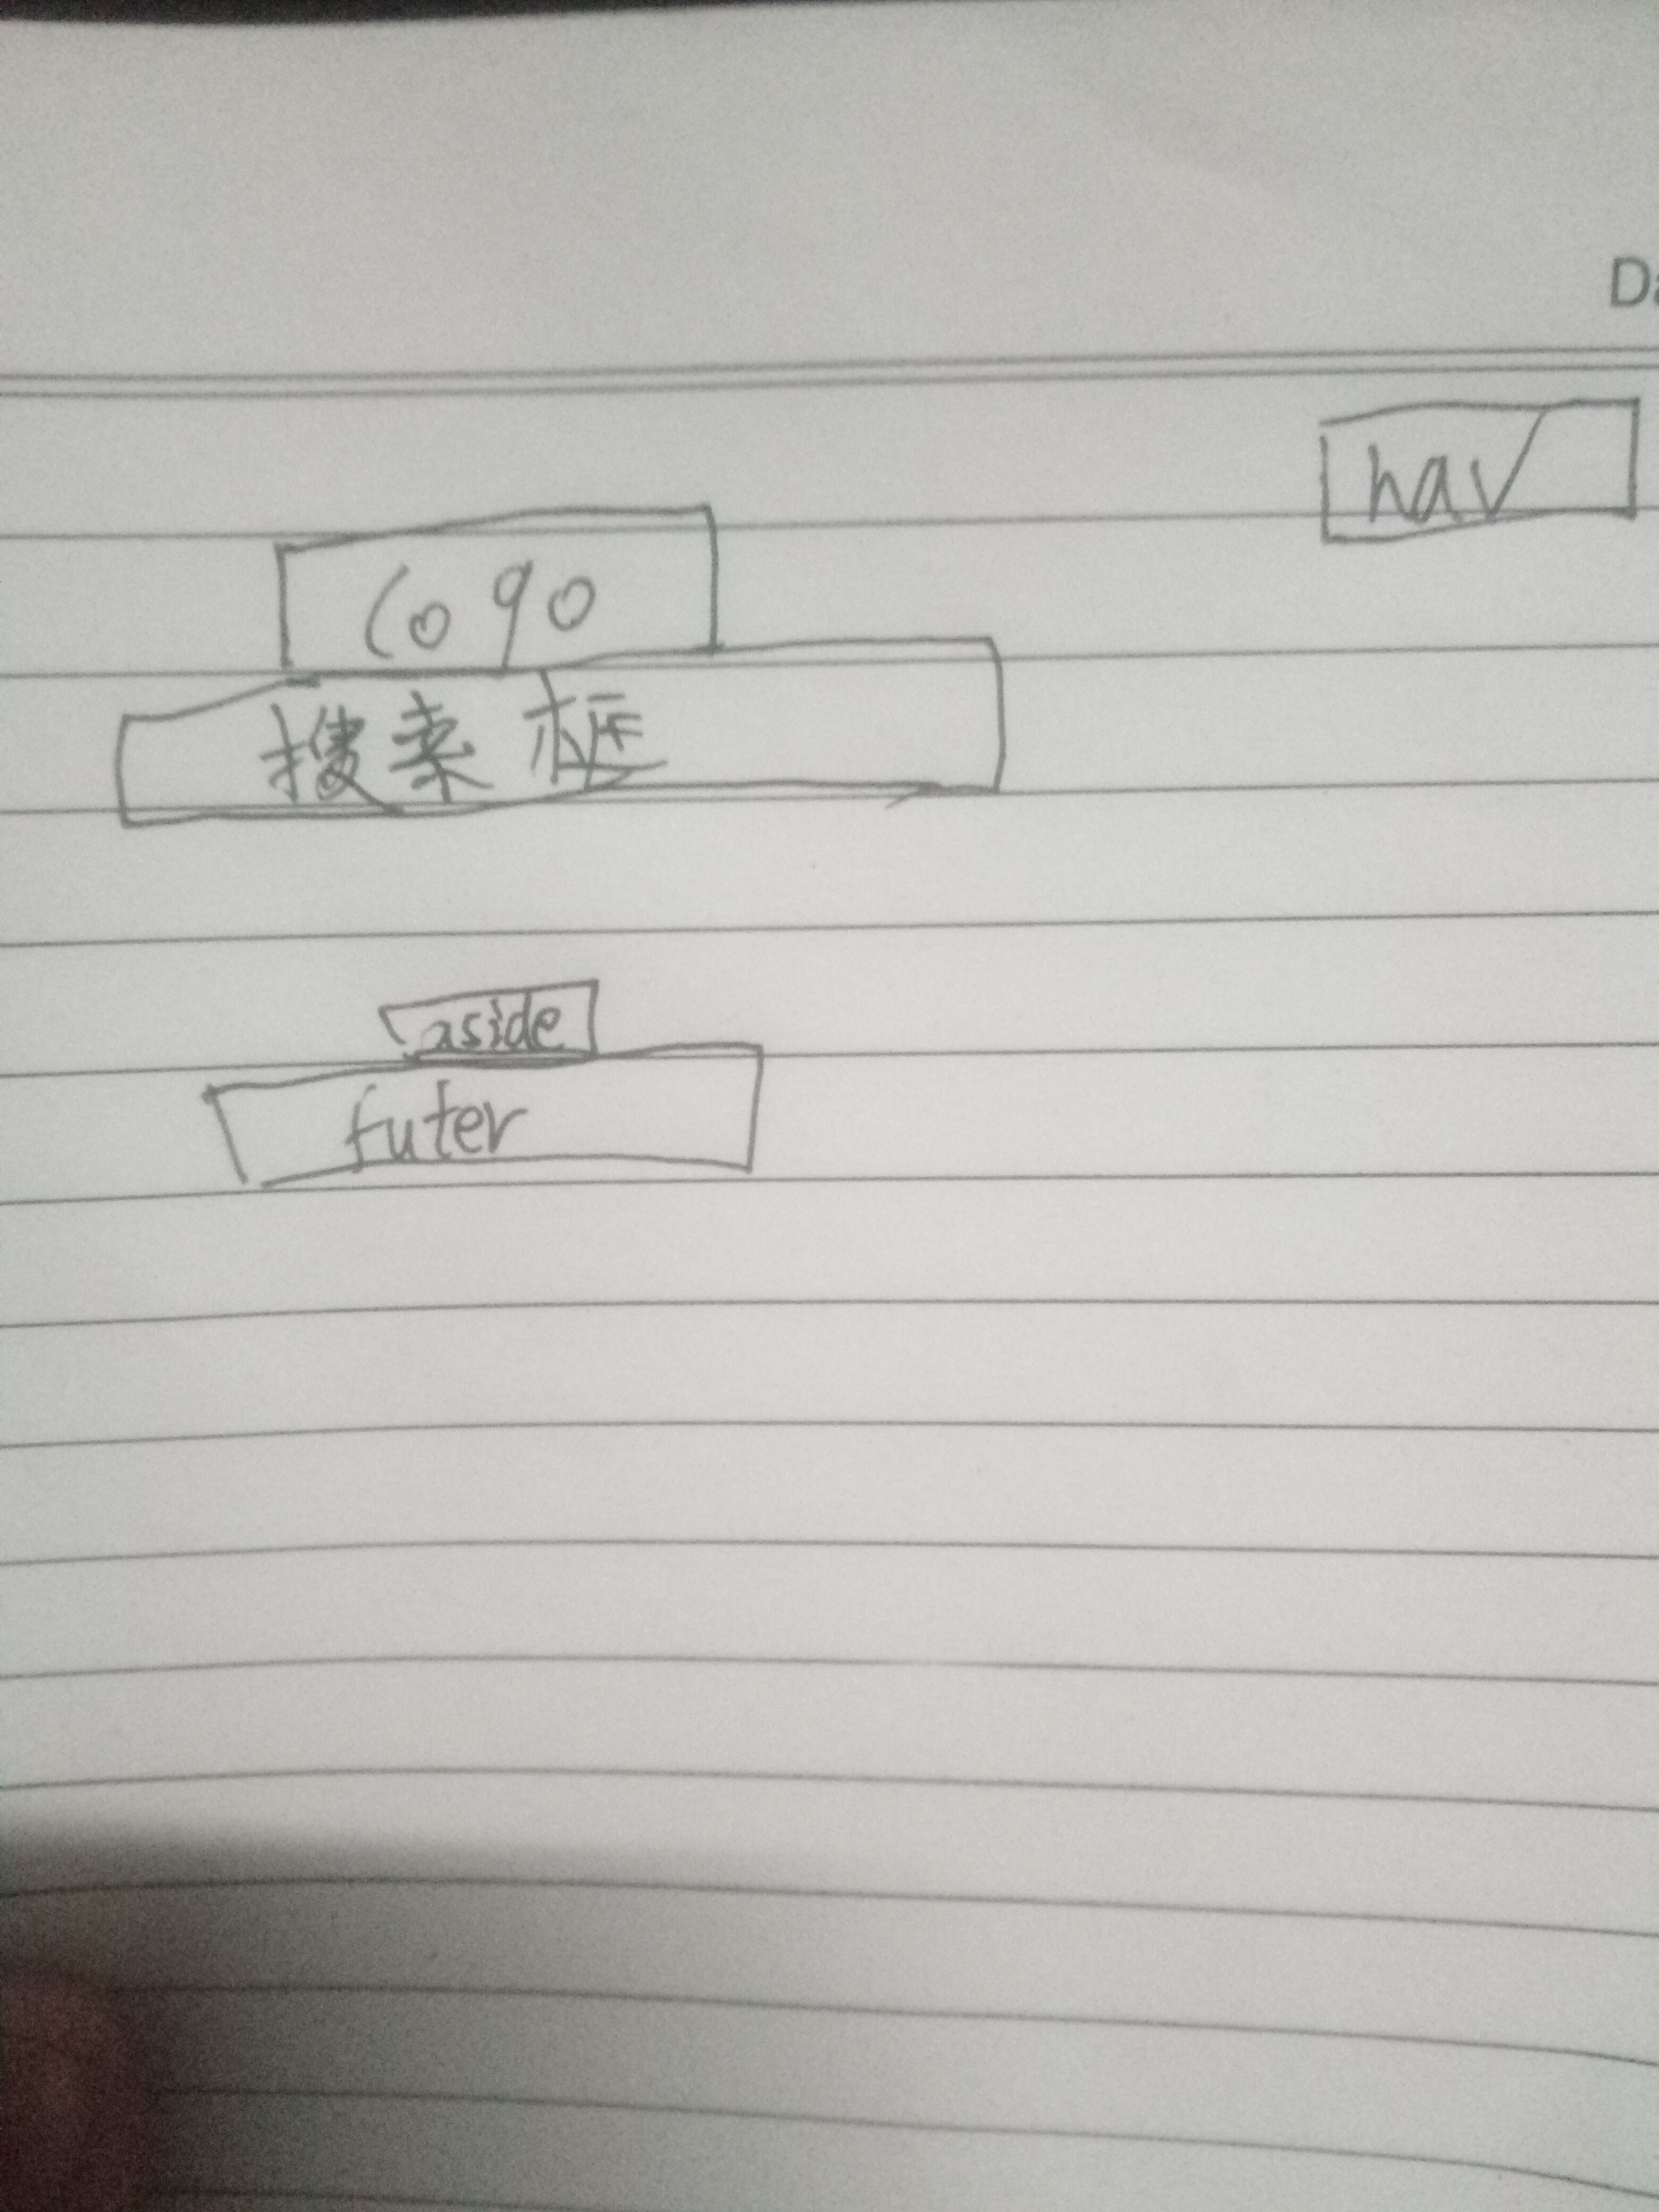 Da
nav
logo
搜索框
aside
futer